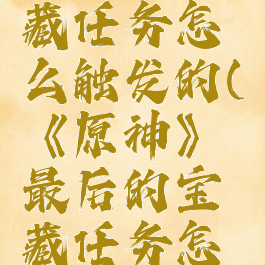 藏任务怎
么触发的(
《原神》
最后的宝
藏任务怎